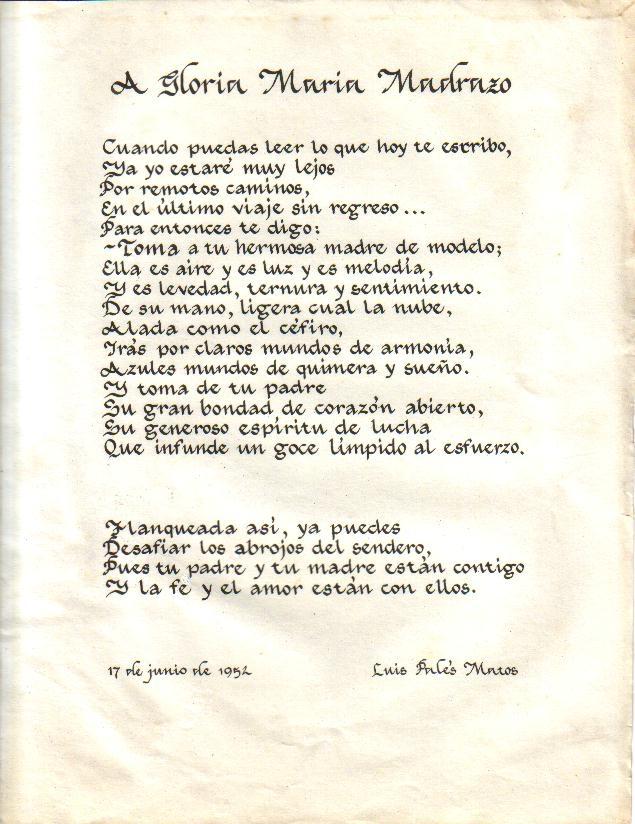 A Gloria Maria Madrazo
Cuando puedas leer lo que hoy te escribo,
Ya yo estaré muy lejos
Por remotos caminos,
En el último viaje sin regreso...
Para entonces te digo:
~Toma a tu hermosa madre de modelo;
Ella es aire y es luz y es melodía,
Y es levedad, ternura y sentimiento.
De su mano, ligera cual la nube,
Alada como el céfiro,
Irás por claros mundos de armonía,
Azules mundos de quimera y sueño.
Y toma de tu padre
Su gran bondad de corazón abierto,
Su generoso espíritu de lucha
Que infunde un goce límpido al esfuerzo.
Flanqueada así, ya puedes
Desafiar los abrojos del sendero,
Pues tu padre y tu madre están contigo
Y la fe y el amor están con ellos.
17 de junio de 1952 Luis Palés Matos